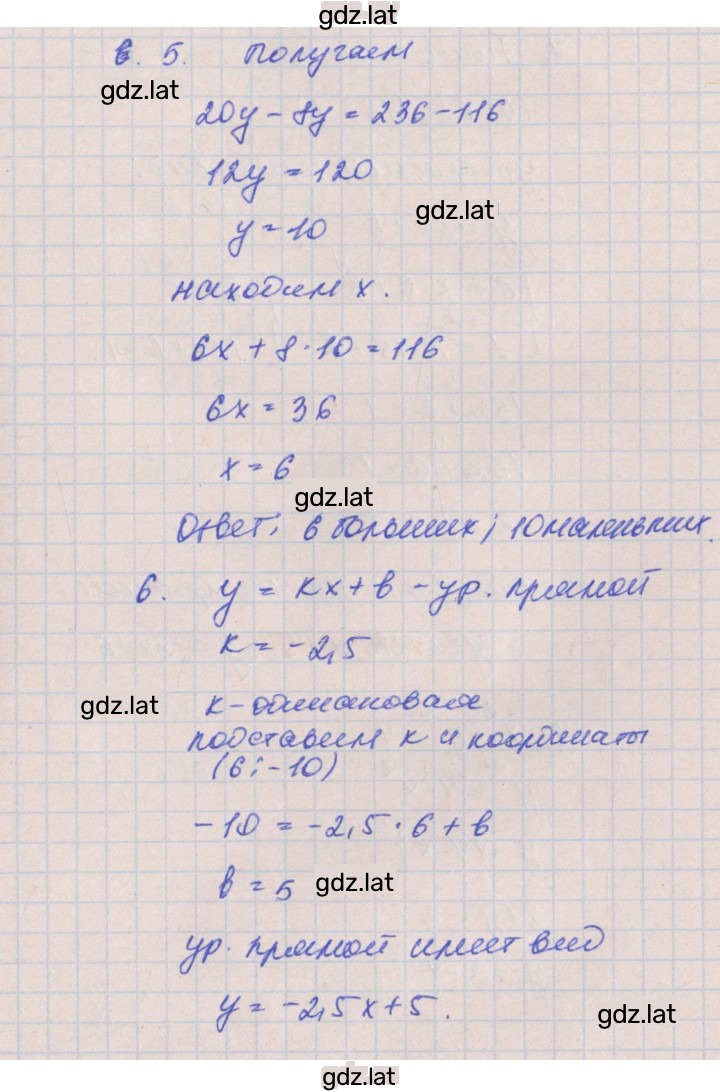 gdz.lat
в. 5. Получаем
gdz.lat
20y - 8y = 236 - 116
12y = 120
gdz.lat
y = 10
находим x.
6x + 8 · 10 = 116
6x = 36
x = 6
gdz.lat
Ответ: 6 больших; 10 маленьких.
6. y = kx + b - ур. прямой
k = -2,5
gdz.lat
k - одинаковая
подставим k и координаты
(6; -10)
-10 = -2,5 · 6 + b
b = 5
gdz.lat
ур. прямой имеет вид
y = -2,5x + 5.
gdz.lat
gdz.lat